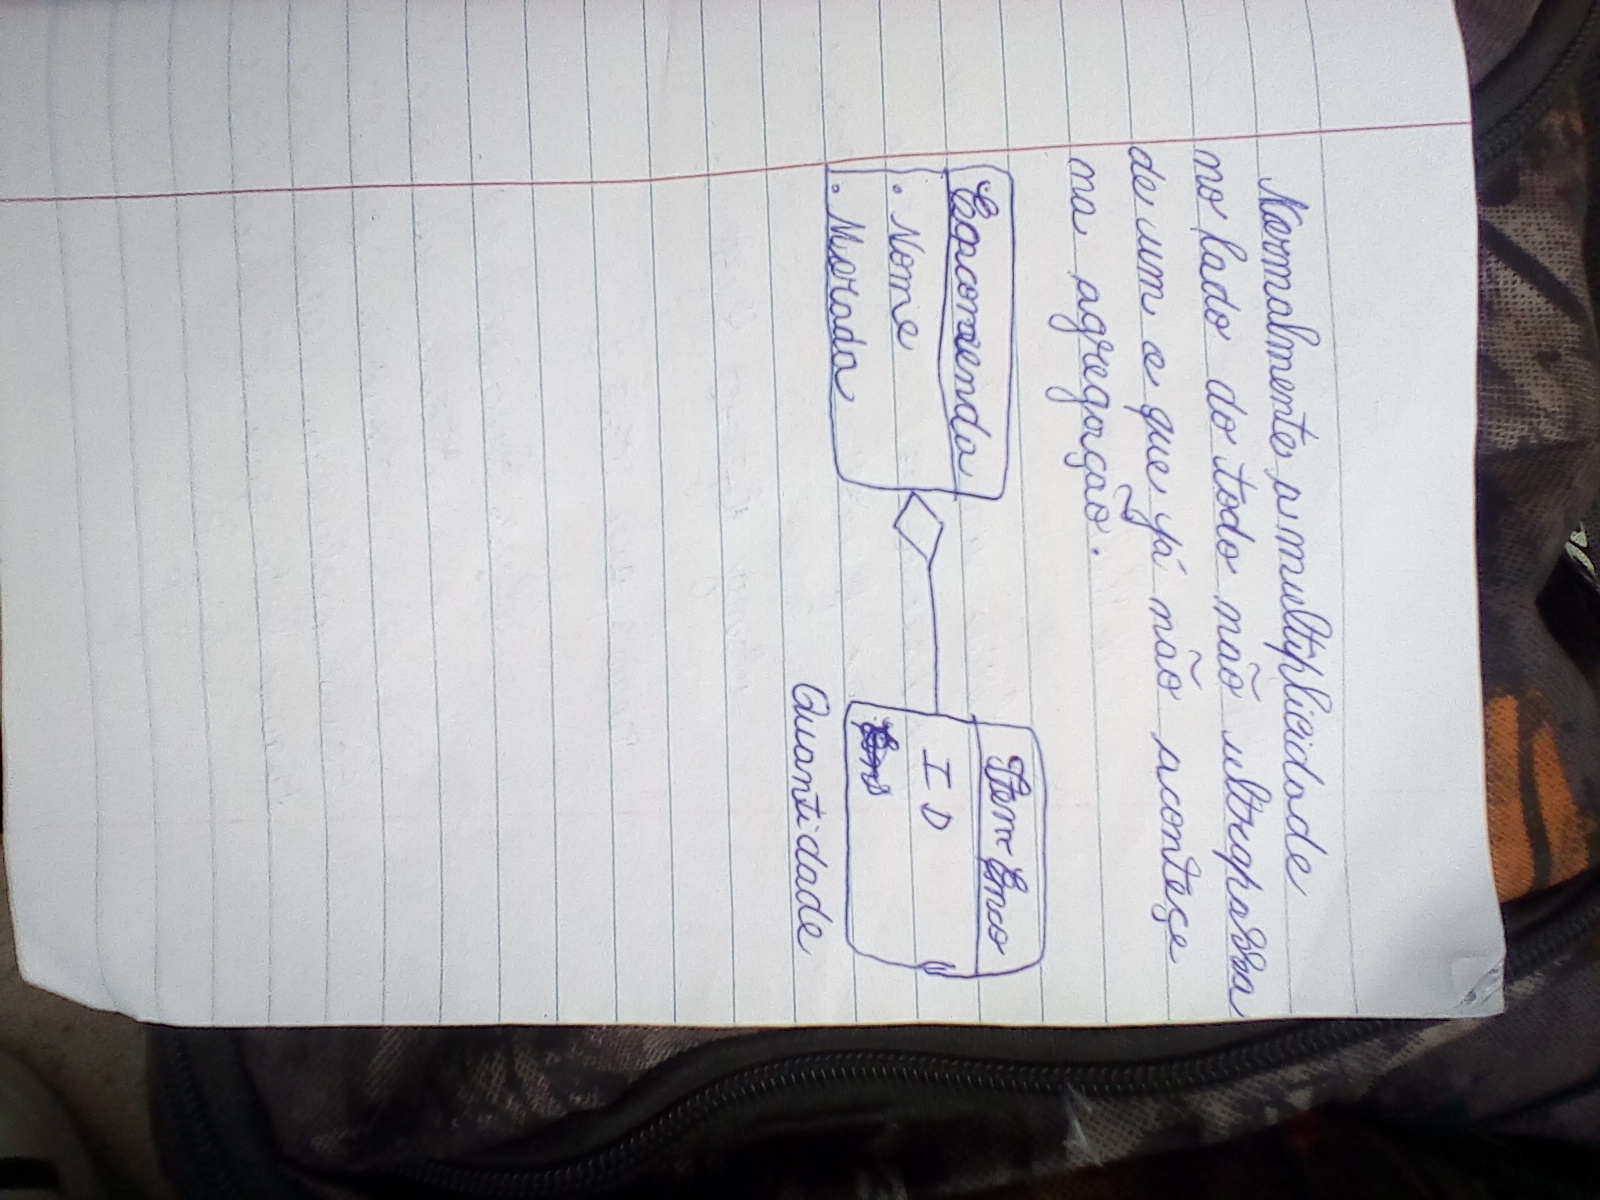 Normalmente a multiplicidade
no lado do todo não ultrapassa
de um o que já não acontece
na agregação.
Encomenda
. Nome
. Morada
Item Enco
ID
Quantidade